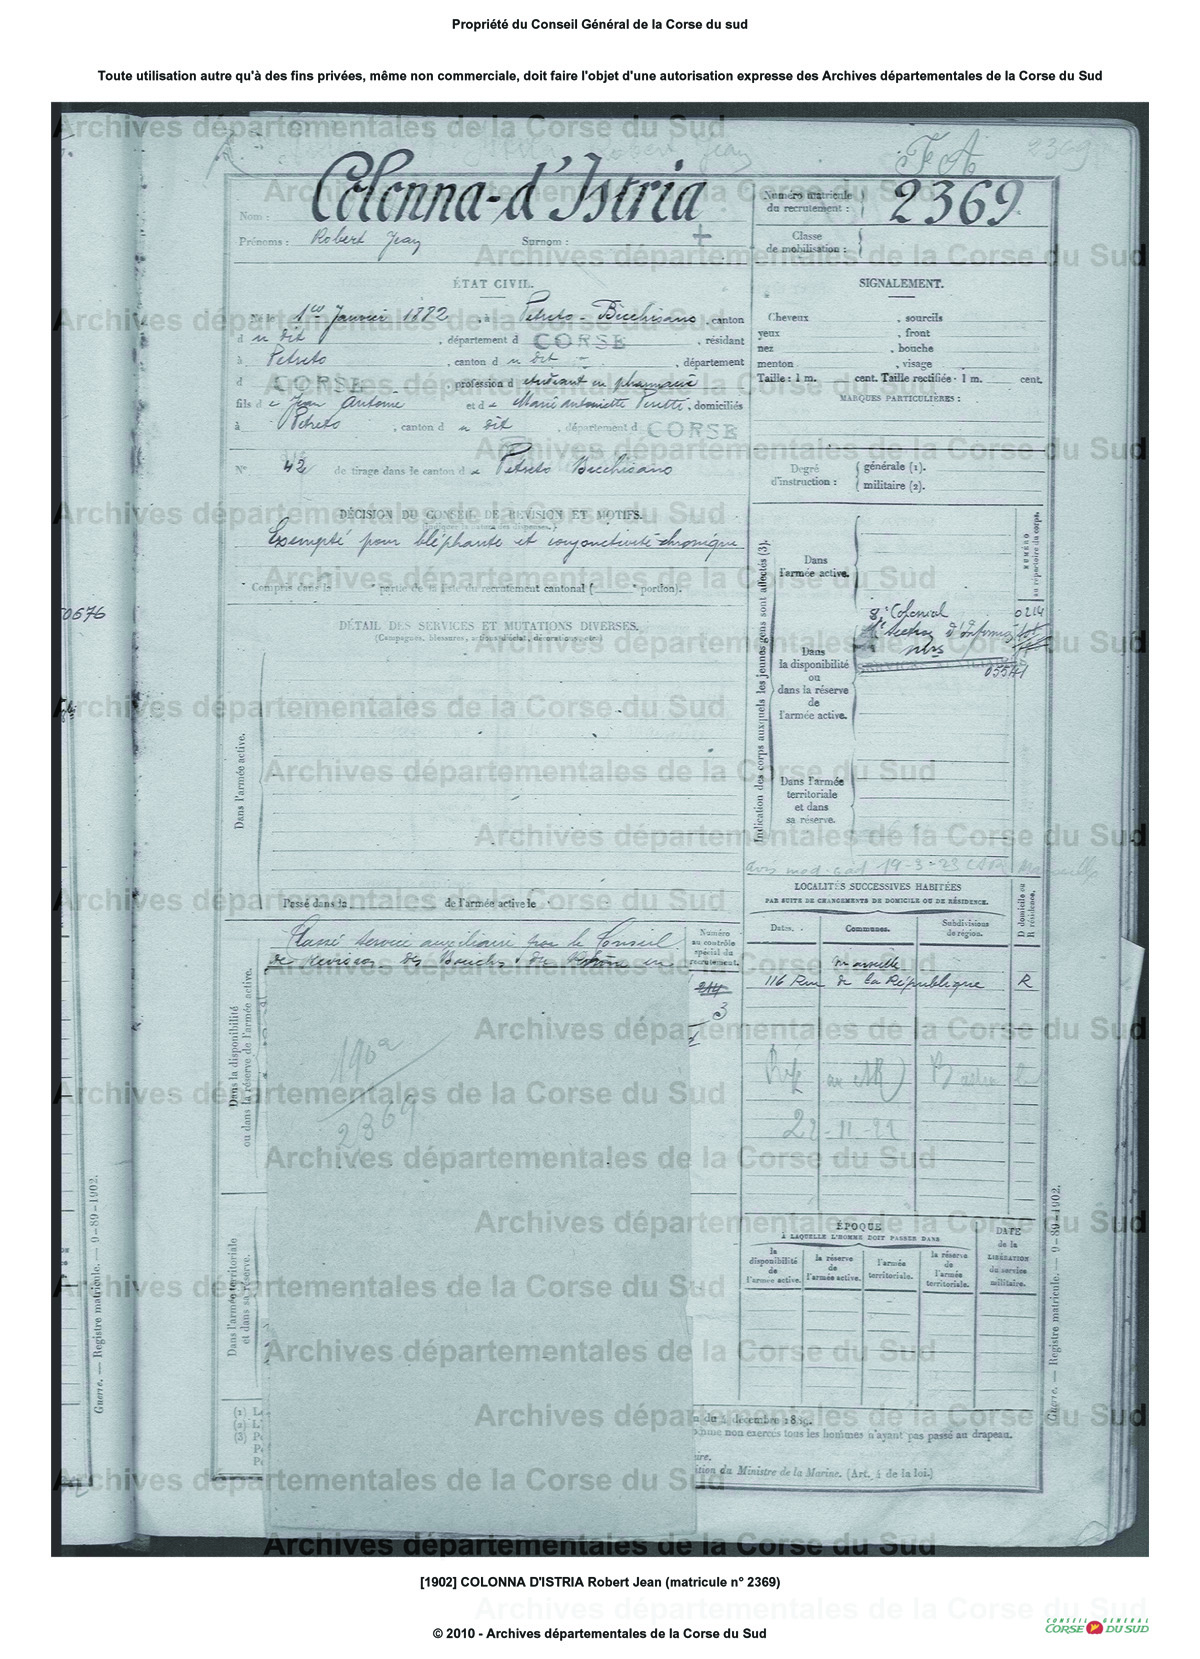 Propriété du Conseil Général de la Corse du sud
Toute utilisation autre qu'à des fins privées, même non commerciale, doit faire l'objet d'une autorisation expresse des Archives départementales de la Corse du Sud
Archives départementales de la Corse du Sud
Nom : Colonna-d'Istria
Prénoms : Robert Jean Surnom :
Numéro matricule du recrutement : 2369
Classe de mobilisation :
ÉTAT CIVIL.
Né le 1er Janvier 1882, à Petreto-Bicchisano, canton
d u dit, département d CORSE, résidant
à Petreto, canton d u dit, département
d CORSE, profession d étudiant en pharmacie
fils d e Jean Antoine et d e Marie Antoinette Peretti, domiciliés
à Petreto, canton d u dit, département d CORSE
N° 42 de tirage dans le canton d e Petreto Bicchisano
DÉCISION DU CONSEIL DE RÉVISION ET MOTIFS.
Exempté pour blépharite et conjonctivité chronique
Compris dans la partie de la liste du recrutement cantonal ( portion).
DÉTAIL DES SERVICES ET MUTATIONS DIVERSES.
(Campagnes, blessures, actions d'éclat, décorations, etc.)
Dans l'armée active.
Passé dans la de l'armée active le
Classé service auxiliaire par le Conseil
de révision des Bouches du Rhône en
Dans la disponibilité
ou dans la réserve de l'armée active.
1902
2369
Dans l'armée territoriale
et dans sa réserve.
SIGNALEMENT.
Cheveux , sourcils
yeux , front
nez , bouche
menton , visage
Taille : 1 m. cent. Taille rectifiée : 1 m. cent.
MARQUES PARTICULIÈRES :
Degré d'instruction : générale (1).
militaire (2).
Indication des corps auxquels les jeunes gens sont affectés (3).
NUMÉRO au répertoire du corps.
Dans
l'armée active.
8e Colonial 0214
Section d'Infirmiers
Dans
la disponibilité
ou
dans la réserve
de
l'armée active.
Dans l'armée
territoriale
et dans
sa réserve.
19-3-23
LOCALITÉS SUCCESSIVES HABITÉES
PAR SUITE DE CHANGEMENTS DE DOMICILE OU DE RÉSIDENCE.
Dates. Communes. Subdivisions de région. D domicile ou R résidence.
Numéro au contrôle spécial du recrutement.
214
3
Marseille
116 Rue de la République R
22-11-22
ÉPOQUE
À LAQUELLE L'HOMME DOIT PASSER DANS
DATE de la LIBÉRATION du service militaire.
la disponibilité de l'armée active. la réserve de l'armée active. l'armée territoriale. la réserve de l'armée territoriale.
du 4 décembre 1889.
comme non exercés tous les hommes n'ayant pas passé au drapeau.
du Ministre de la Marine. (Art. 4 de la loi.)
Guerre. — Registre matricule. — 9-89-1902.
Guerre. — Registre matricule. — 9-89-1902.
[1902] COLONNA D'ISTRIA Robert Jean (matricule n° 2369)
© 2010 - Archives départementales de la Corse du Sud
CONSEIL GÉNÉRAL
CORSE DU SUD